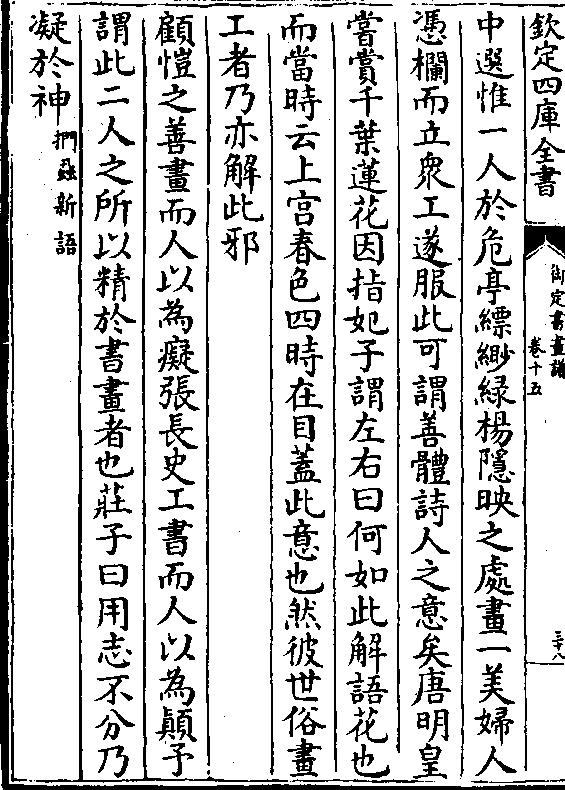 欽定四庫全書
御定書畫譜
卷十五
三十八
中選惟一人於危亭縹緲綠楊隱映之處畫一美婦人
憑欄而立衆工遂服此可謂善體詩人之意矣唐明皇
嘗賞千葉蓮花因指妃子謂左右曰何如此解語花也
而當時云上宮春色四時在目蓋此意也然彼世俗畫
工者乃亦解此邪
顧愷之善畫而人以為癡張長史工書而人以為顛予
謂此二人之所以精於書畫者也莊子曰用志不分乃
凝於神捫蝨新語